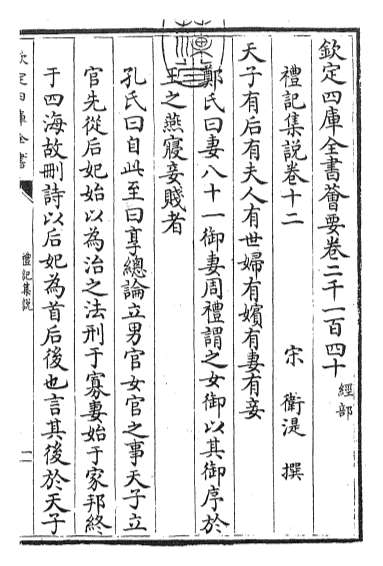 欽定四庫全書薈要卷二千一百四十 經部
禮記集說卷十二
宋 衛湜 撰
天子有后有夫人有世婦有嬪有妻有妾
鄭氏曰妻八十一御妻周禮謂之女御以其御序於
王之燕寢妾賤者
孔氏曰自此至曰享總論立男官女官之事天子立
官先從后妃始以為治之法刑于寡妻始于家邦終
于四海故刪詩以后妃為首后後也言其後於天子
欽定四庫全書
禮記集說
一